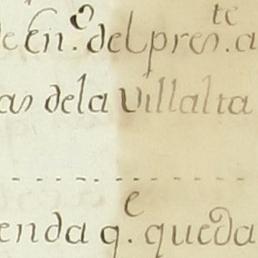 de En.º del pres.te a
as dela villalta
enda q.e queda